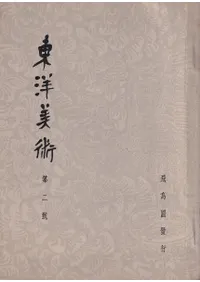 東洋美術
第二號
飛鳥園發行